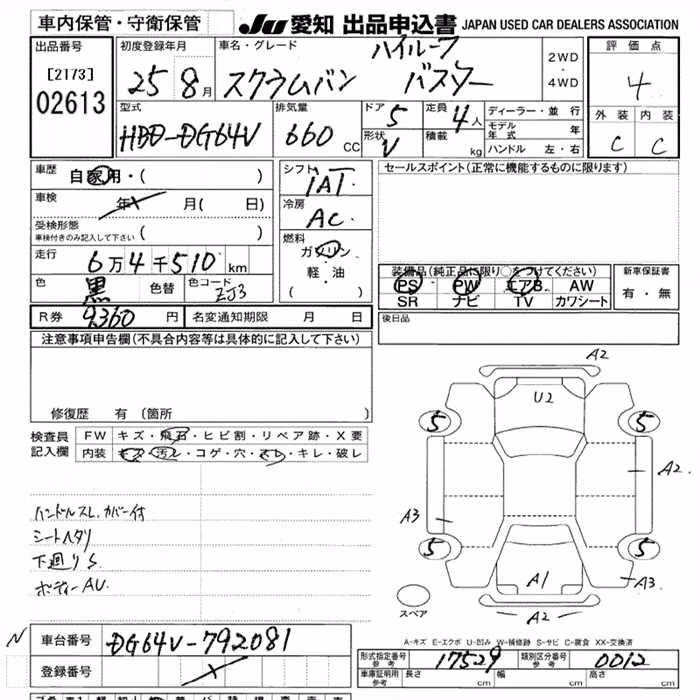 車内保管・守衛保管
JU 愛知 出品申込書 JAPAN USED CAR DEALERS ASSOCIATION
出品番号
[2173]
02613
初度登録年月
25 8月
車名・グレード
ハイルーフ
スクラムバン バスター
2WD
・
4WD
評価点
4
外装 内装
C C
型式
HBD-DG64V
排気量
660 CC
ドア
5
形状
V
定員
4人
積載
kg
ディーラー・並行
モデル年式 年
ハンドル 左・右
車歴
自家用・( )
車検
年 月( 日)
受検形態
車検付きのみ記入して下さい ( )
走行
6万4千510km
色
黒
色替
色コード
ZJ3
シフト
IAT
冷房
AC
燃料
ガソリン
軽・油
( )
セールスポイント(正常に機能するものに限ります)
装備品(純正品に限り○をつけてください)
PS PW エアB AW
SR ナビ TV カワシート
新車保証書
有・無
R券 9,360 円
名変通知期限 月 日
後日品
注意事項申告欄(不具合内容等は具体的に記入して下さい)
修復歴 有(箇所
検査員
記入欄
FW キズ・飛石・ヒビ割・リペア跡・X要
内装 キズ・汚レ・コゲ・穴・スレ・キレ・破レ
ハンドルスレ カバー付
シートヘタリ
下廻りS
ボディーAU
A2
U2
5 5
A2
A3
5 5
A1
A3
A2
スペア
A-キズ E-エクボ U-凹み W-補修跡 S-サビ C-腐食 XX-交換済
N
車台番号 DG64V-792081
登録番号
形式指定番号
参考
17529
類別区分番号
参考
0012
車庫証明用
参考
長さ cm 幅 cm 高さ cm